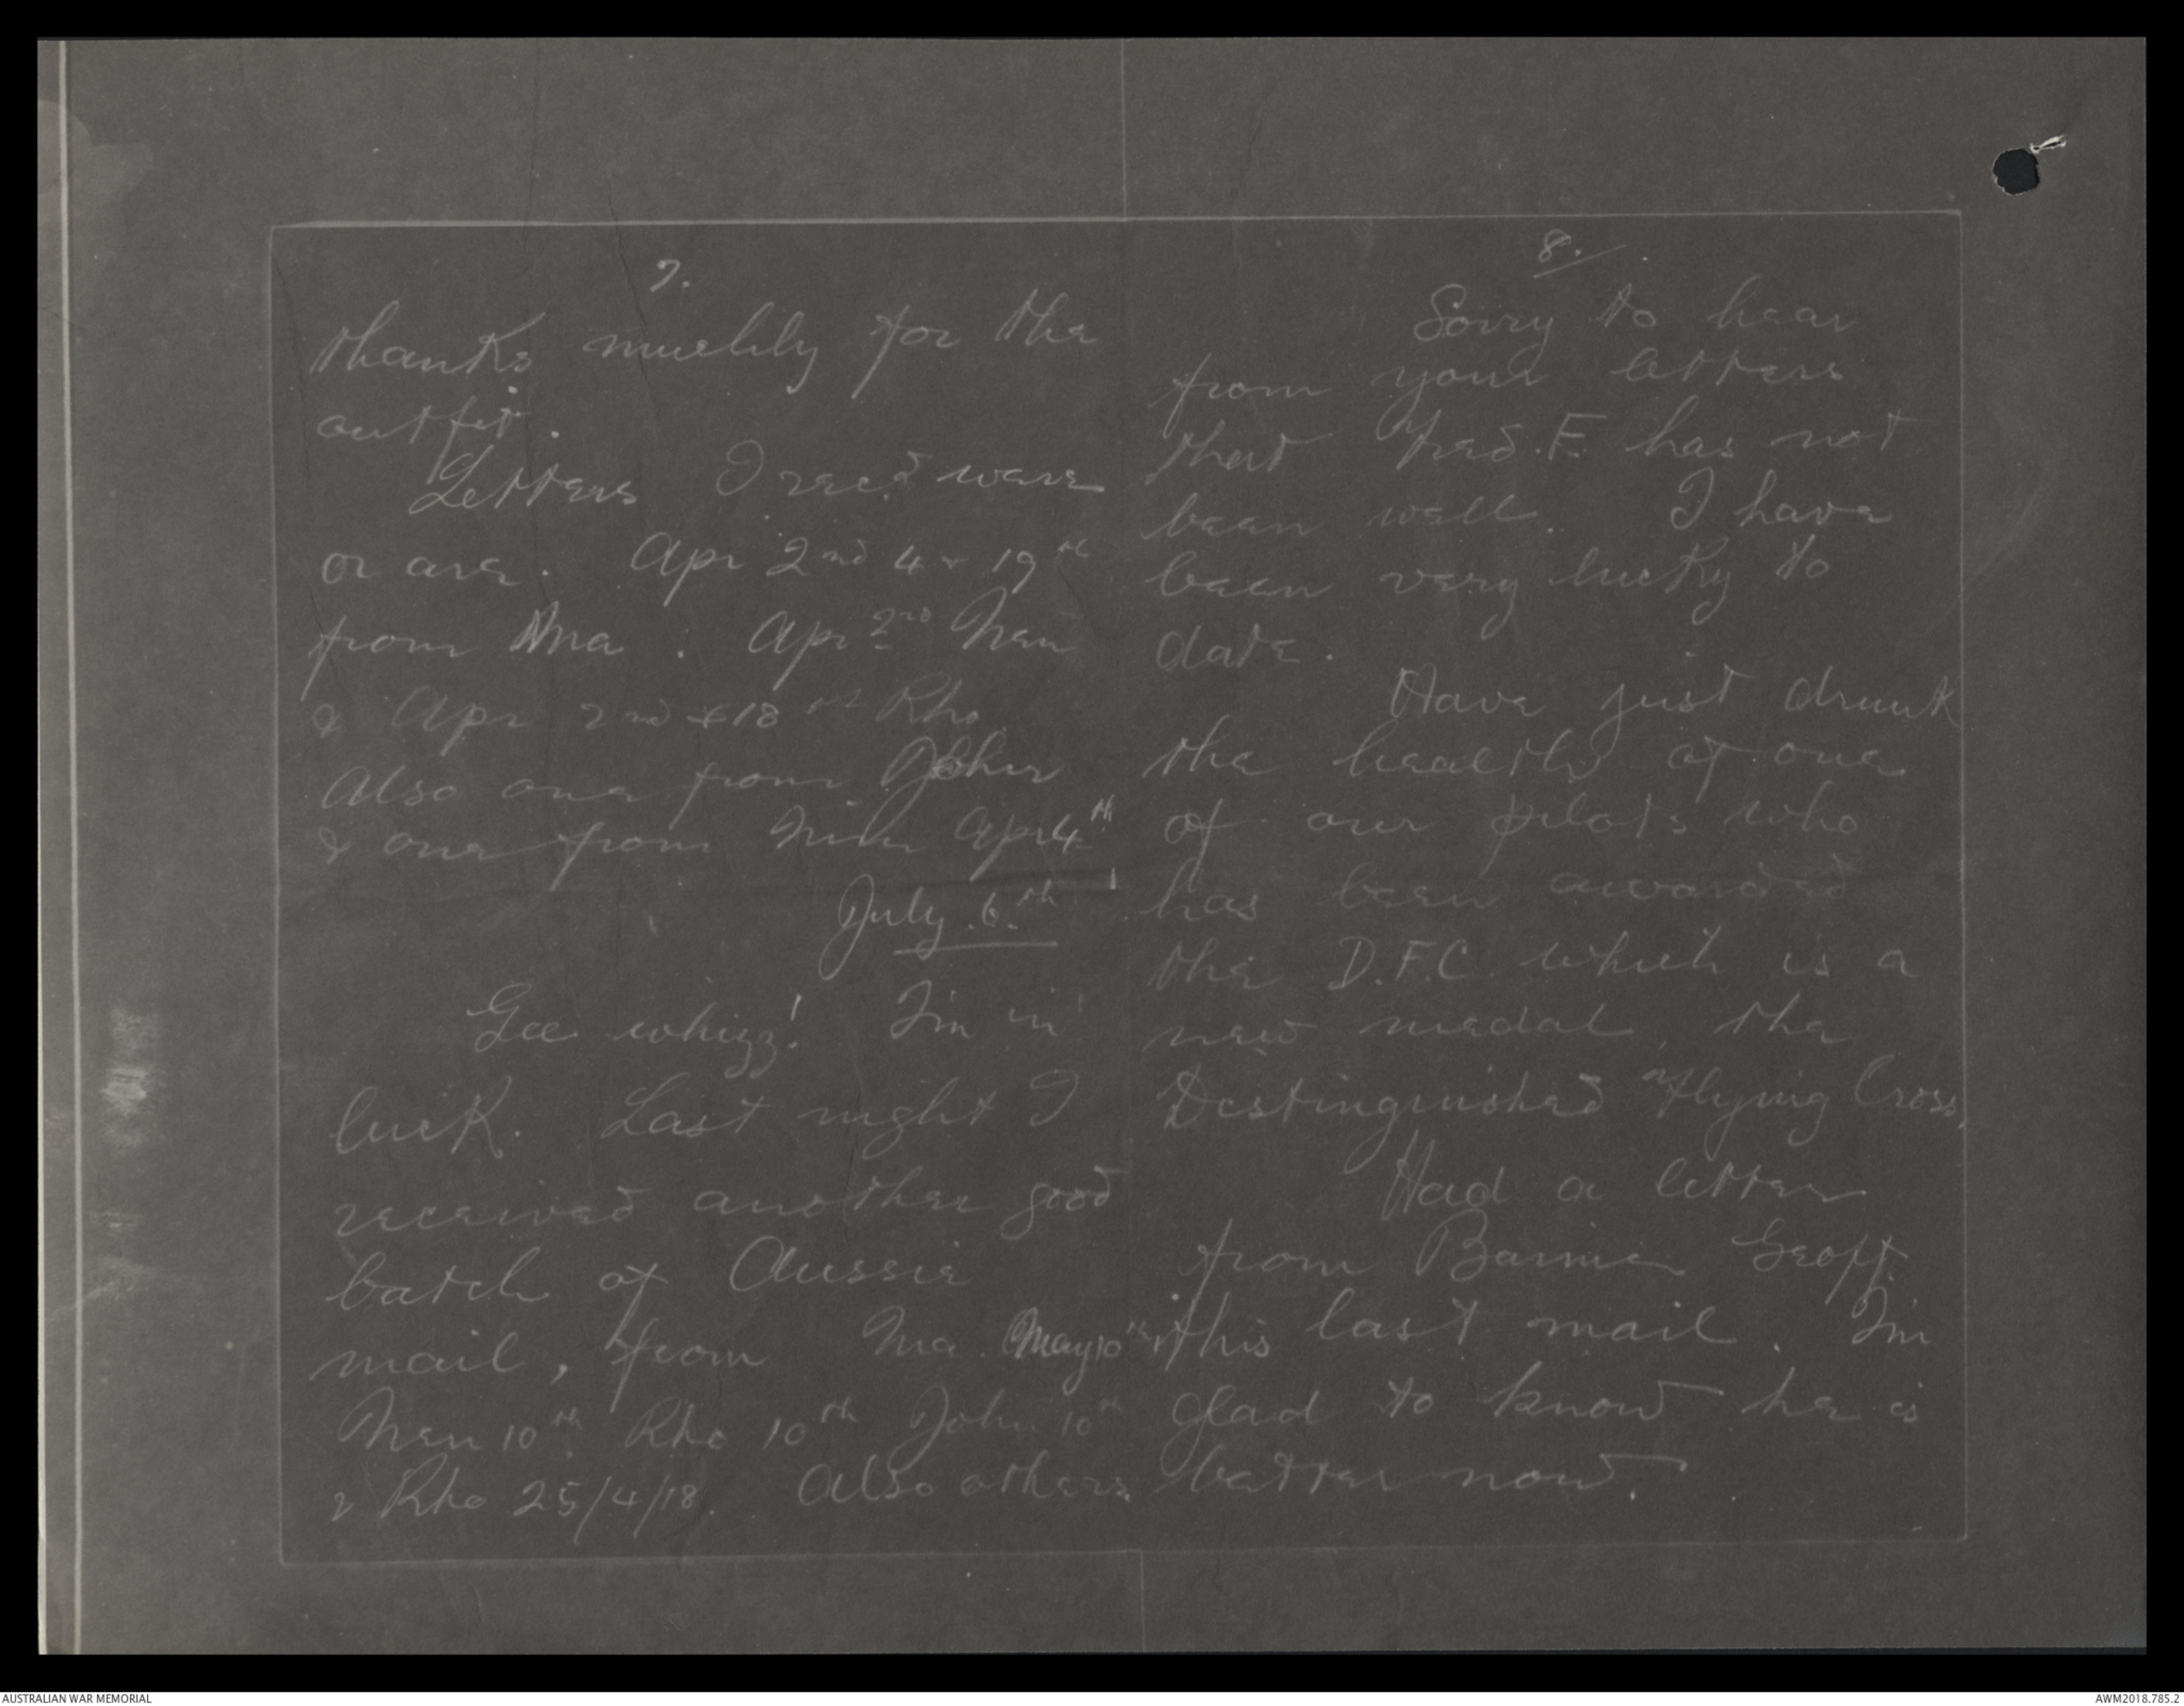 7.
thanks muchly for the
outfit.
Letters I recd were
or are. Apr 2nd 4 & 19th
from Ma. Apr 2nd Nen
& Apr 2nd & 18th Rho
Also one from John
& one from Apr 4th
July 6th
Gee whizz! I'm in
luck. Last night I
received another good
batch of Aussie
mail, from Ma May 10th
Nen 10th Rho 10th John 10th
& Rho 25/4/18. Also others.
8.
Sorry to hear
from your letters
that F. has not
been well. I have
been very lucky to
date.
Have just drunk
the health of one
of our pilots who
has been awarded
the D.F.C. which is a
new medal, the
Distinguished Flying Cross.
Had a letter
from Geoff
this last mail. I'm
glad to know he is
better now.
AUSTRALIAN WAR MEMORIAL
AWM2018.785.2